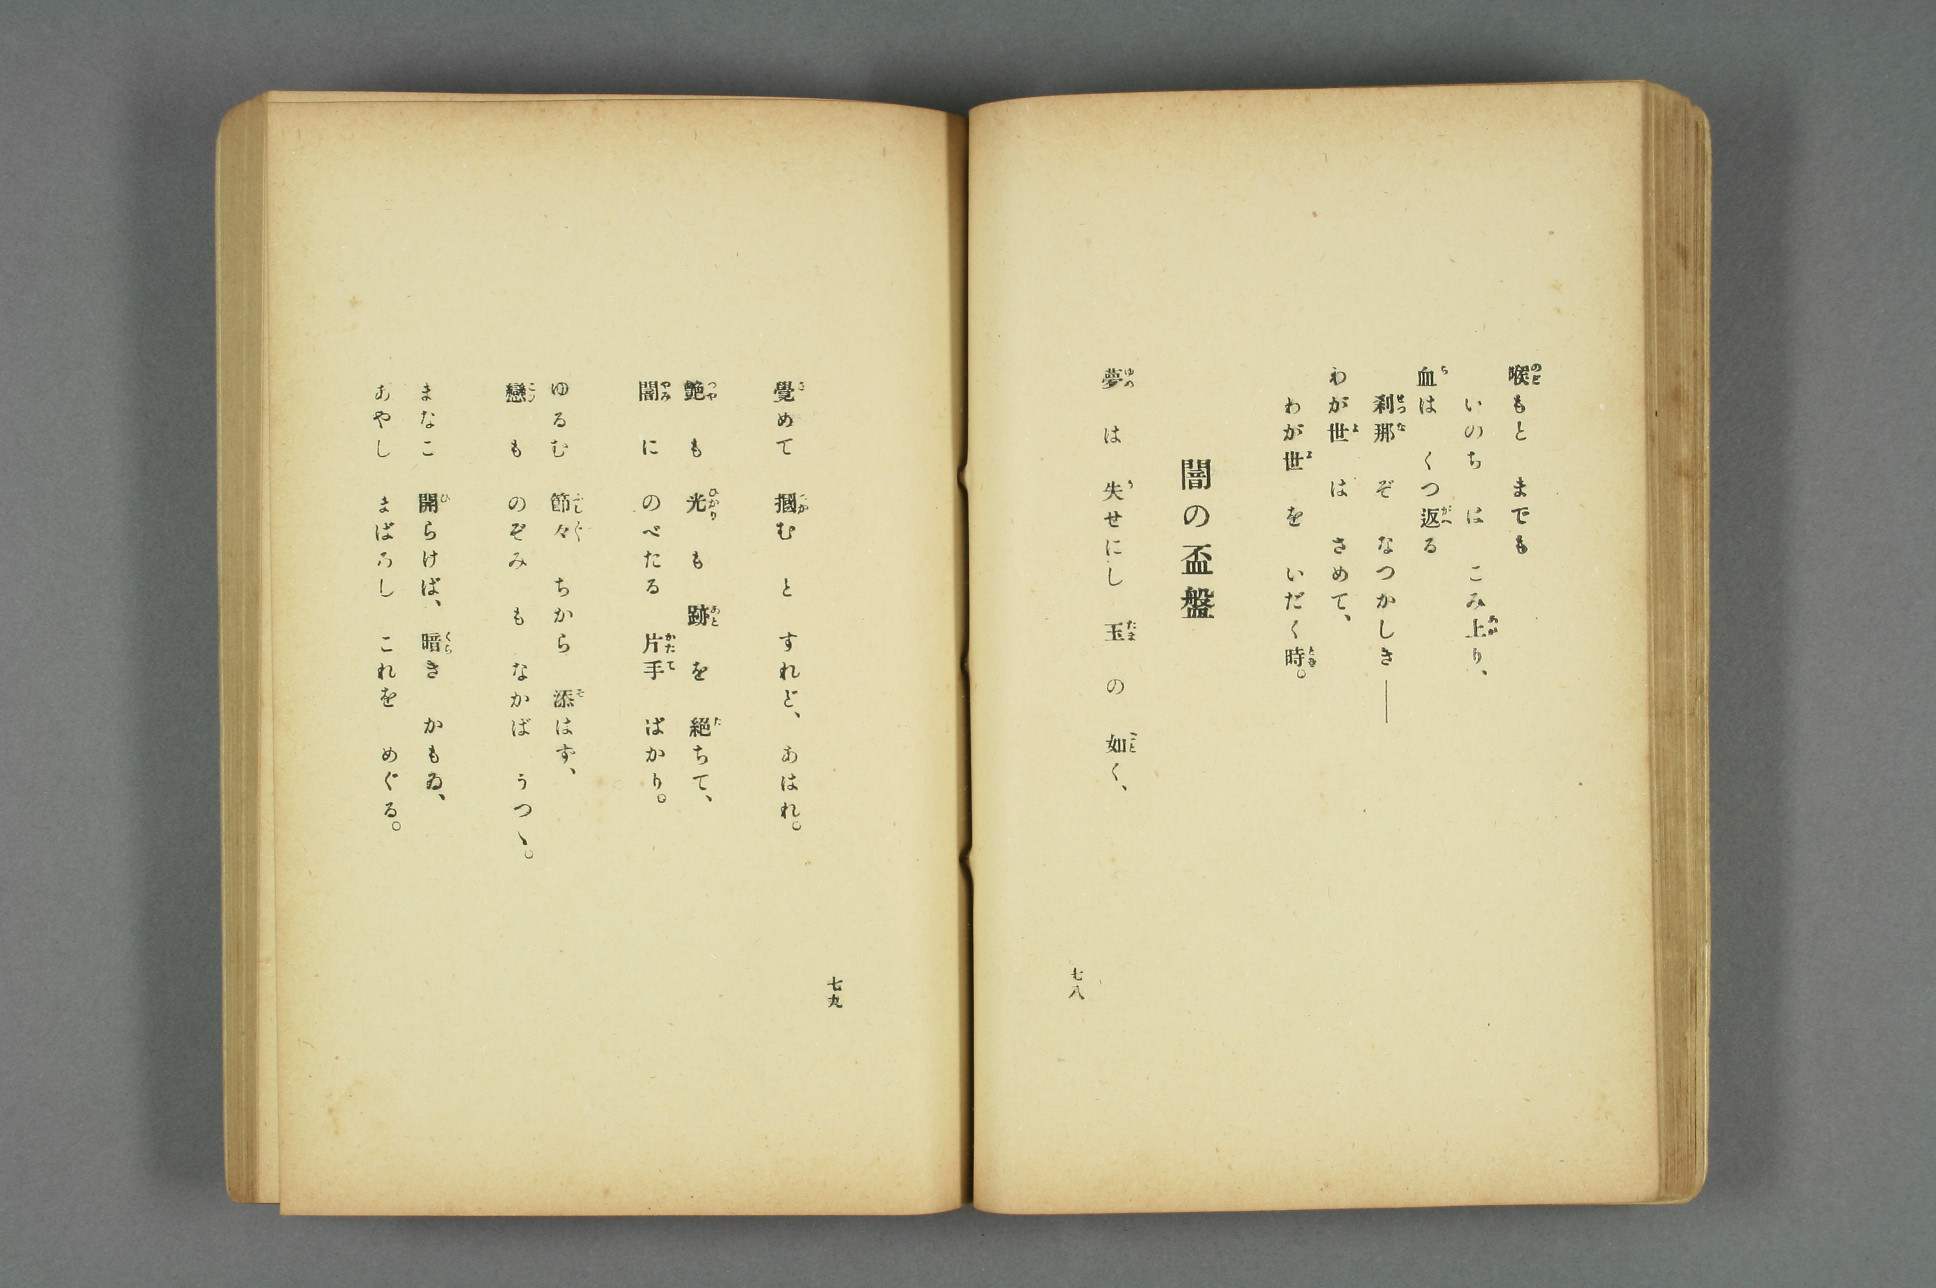 喉もと までも
いのち は こみ上り、
血は くつ返る
刹那 ぞ なつかしき――
わが世 は さめて、
わが世 を いだく時。
闇の盃盤
夢 は 失せにし 玉 の 如く、
七八
覺めて 摑む と すれど、あはれ。
艶 も 光 も 跡 を 絕ちて、
闇 に のべたる 片手 ばかり。
ゆるむ 節々 ちから 添はず、
戀 も のぞみ も なかば うつゝ。
まなこ 開らけば、暗き かもゐ、
あやし まぼろし これを めぐる。
七九